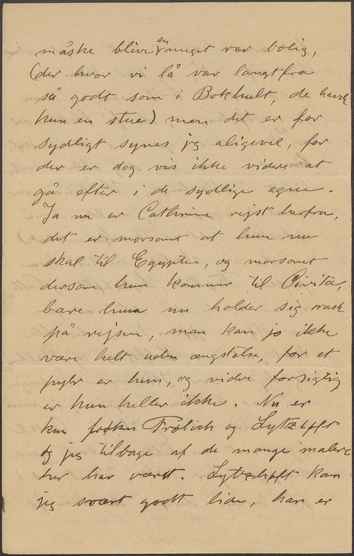 måske blive en meget rar bolig,
(der hvor vi lå var langtfra
så godt som i Bokhult, de havde
kun en stue) men det er for
sydligt synes jeg aligevel, for
der er dog vis ikke videre at
gå efter i de sydlige egne.
Ja nu er Cathrine rigst herfra,
det er morsomt at hun nu
skal til Egypten, og morsomt
dersom hun kommer til
bare hun nu holder sig rask
på rejsen, man kan jo ikke
være helt uden ængstelse, for et
pylr er hun, og videre forsigtig
er hun heller ikke. Nu er
kun frøken Frølich og
og jeg tilbage af de mange malere
her har været. kan
jeg svært godt lide, han er